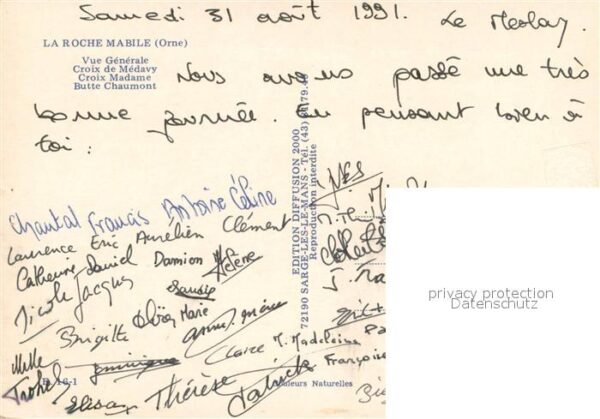 Samedi 31 août 1991. Le Merlay.
LA ROCHE MABILE (Orne)
Vue Générale
Croix de Médavy
Croix Madame
Butte Chaumont
Nous avons passé une très
bonne journée. En pensant bien à
toi :
Chantal Francis Antoine Céline
Laurence Eric Aurélien Clément
Catherine Daniel Damien Hélène
Nicole Jacques
Brigitte Marie
Claire M. Madeleine
Françoise
Elisa Thérèse Patrick
YVES
EDITION DIFFUSION 2000
72190 SARGE-LES-LE-MANS - Tél. (43)
Reproduction interdite
Couleurs Naturelles
privacy protection
Datenschutz